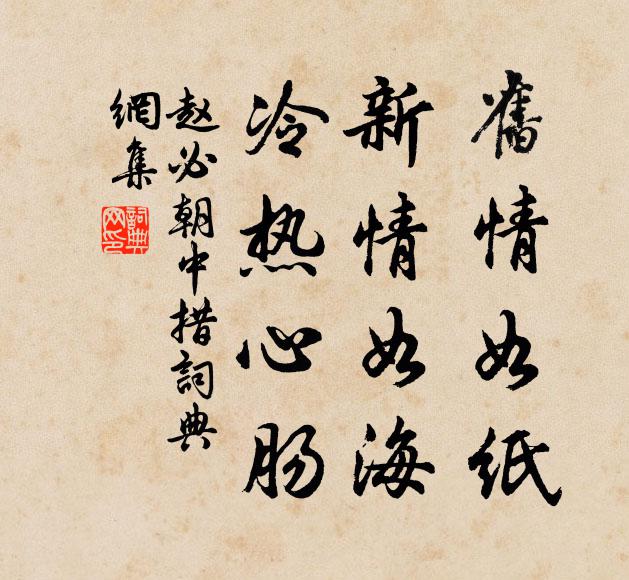 舊情如紙
新情如海
冷热心肠
赵必朝中措詞典
網集
詞典
网印